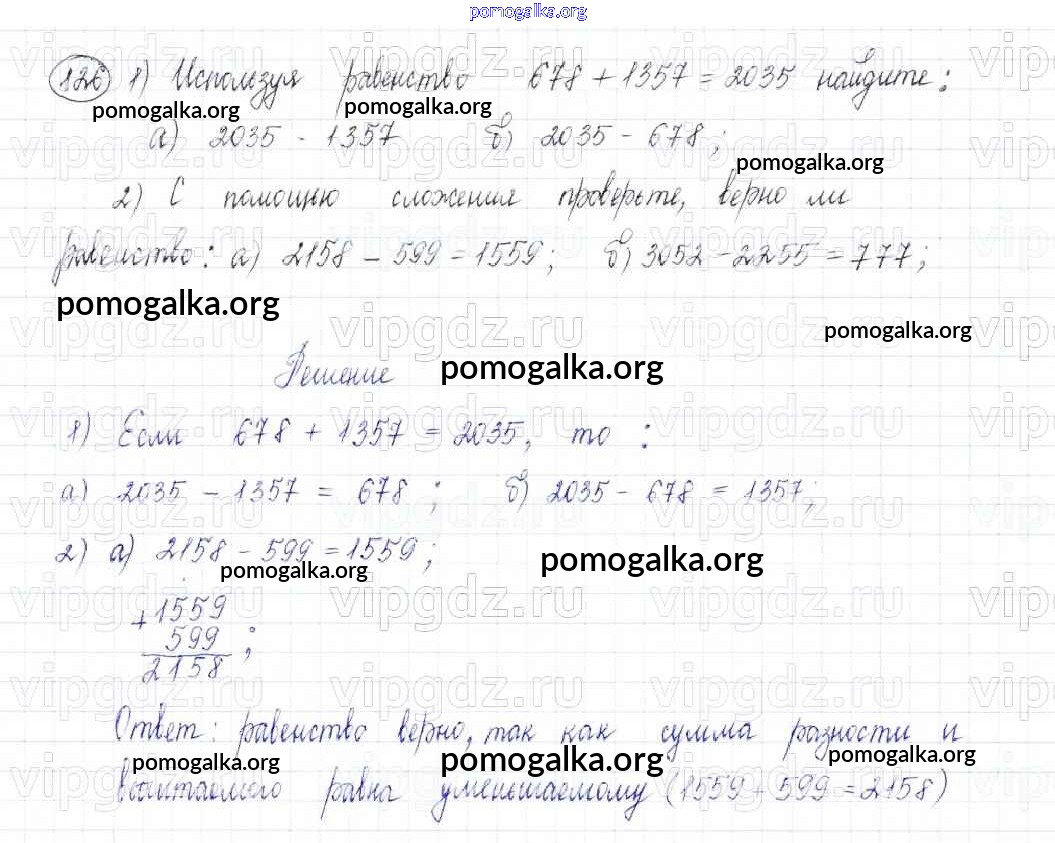 pomogalka.org
126 1) Используя равенство 678 + 1357 = 2035 найдите:
pomogalka.org pomogalka.org
а) 2035 - 1357 б) 2035 - 678;
pomogalka.org
2) С помощью сложения проверьте, верно ли
равенство: а) 2158 - 599 = 1559; б) 3052 - 2255 = 777;
pomogalka.org
pomogalka.org
Решение pomogalka.org
1) Если 678 + 1357 = 2035, то :
а) 2035 - 1357 = 678 ; б) 2035 - 678 = 1357;
2) а) 2158 - 599 = 1559;
pomogalka.org pomogalka.org
+1559
599 ;
2158
Ответ: равенство верно, так как сумма разности и
pomogalka.org pomogalka.org pomogalka.org
вычитаемого равна уменьшаемому (1559 + 599 = 2158)
vipgdz.ru